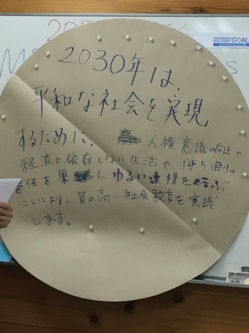 2030年は、
平和な社会を実現
するために、人権意識の向上や
経済に依存しない生活や
責任を果し ゆるい連携を結ぶ
ことにより、質の高い社会教育を実践
します。
GOALS